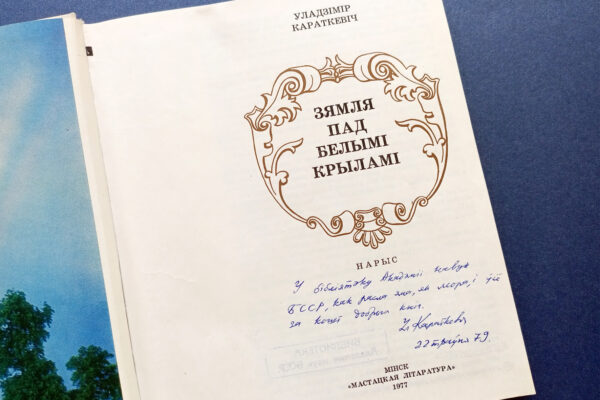 УЛАДЗІМІР
КАРАТКЕВІЧ
ЗЯМЛЯ
ПАД
БЕЛЫМІ
КРЫЛАМІ
НАРЫС
У бібліятэку Акадэміі навук
БССР, каб расла яна, як мора, і
за кошт добрых кніг.
У. Караткевіч
22 траўня 79.
БИБЛИОТЕКА
Академии наук БССР
МІНСК
«МАСТАЦКАЯ ЛІТАРАТУРА»
1977